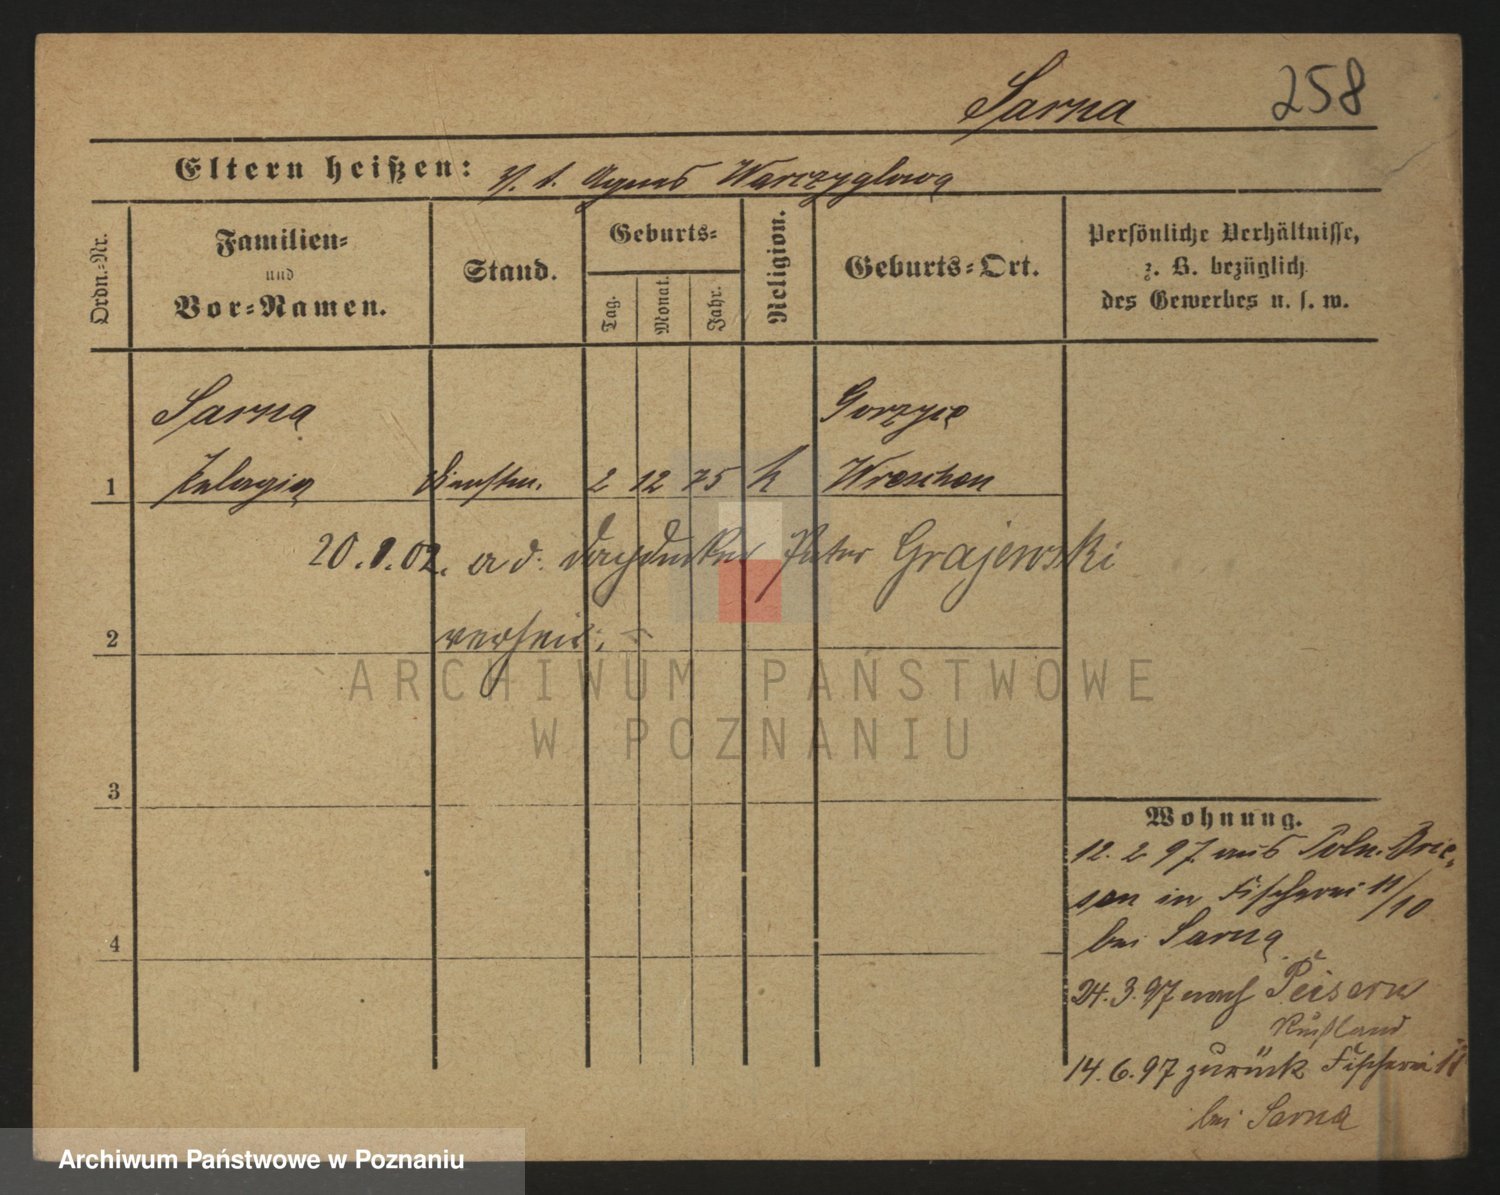 Sarna 258
Eltern heißen: V. t. Agnes Warczyglowa
Ordn.-Nr.
Familien-
und
Vor-Namen.
Stand.
Geburts-
Tag.
Monat.
Jahr.
Religion.
Geburts-Ort.
Persönliche Verhältnisse,
z. B. bezüglich
des Gewerbes u. s. w.
Sarna Gorzyce
1 Pelagia Dienstm. 2 12 75 k Wreschen
20.1.02. ad. Dachdecker Peter Grajewski
2 verheir.
3
4
Wohnung.
12. 2. 97. aus Poln. Brie-
sen in Fischerei 11/10
bei Sarna
24. 3. 97 nach Peisern
Rußland
14. 6. 97 zurück Fischerei 11
bei Sarna
ARCHIWUM PAŃSTWOWE
W POZNANIU
Archiwum Państwowe w Poznaniu